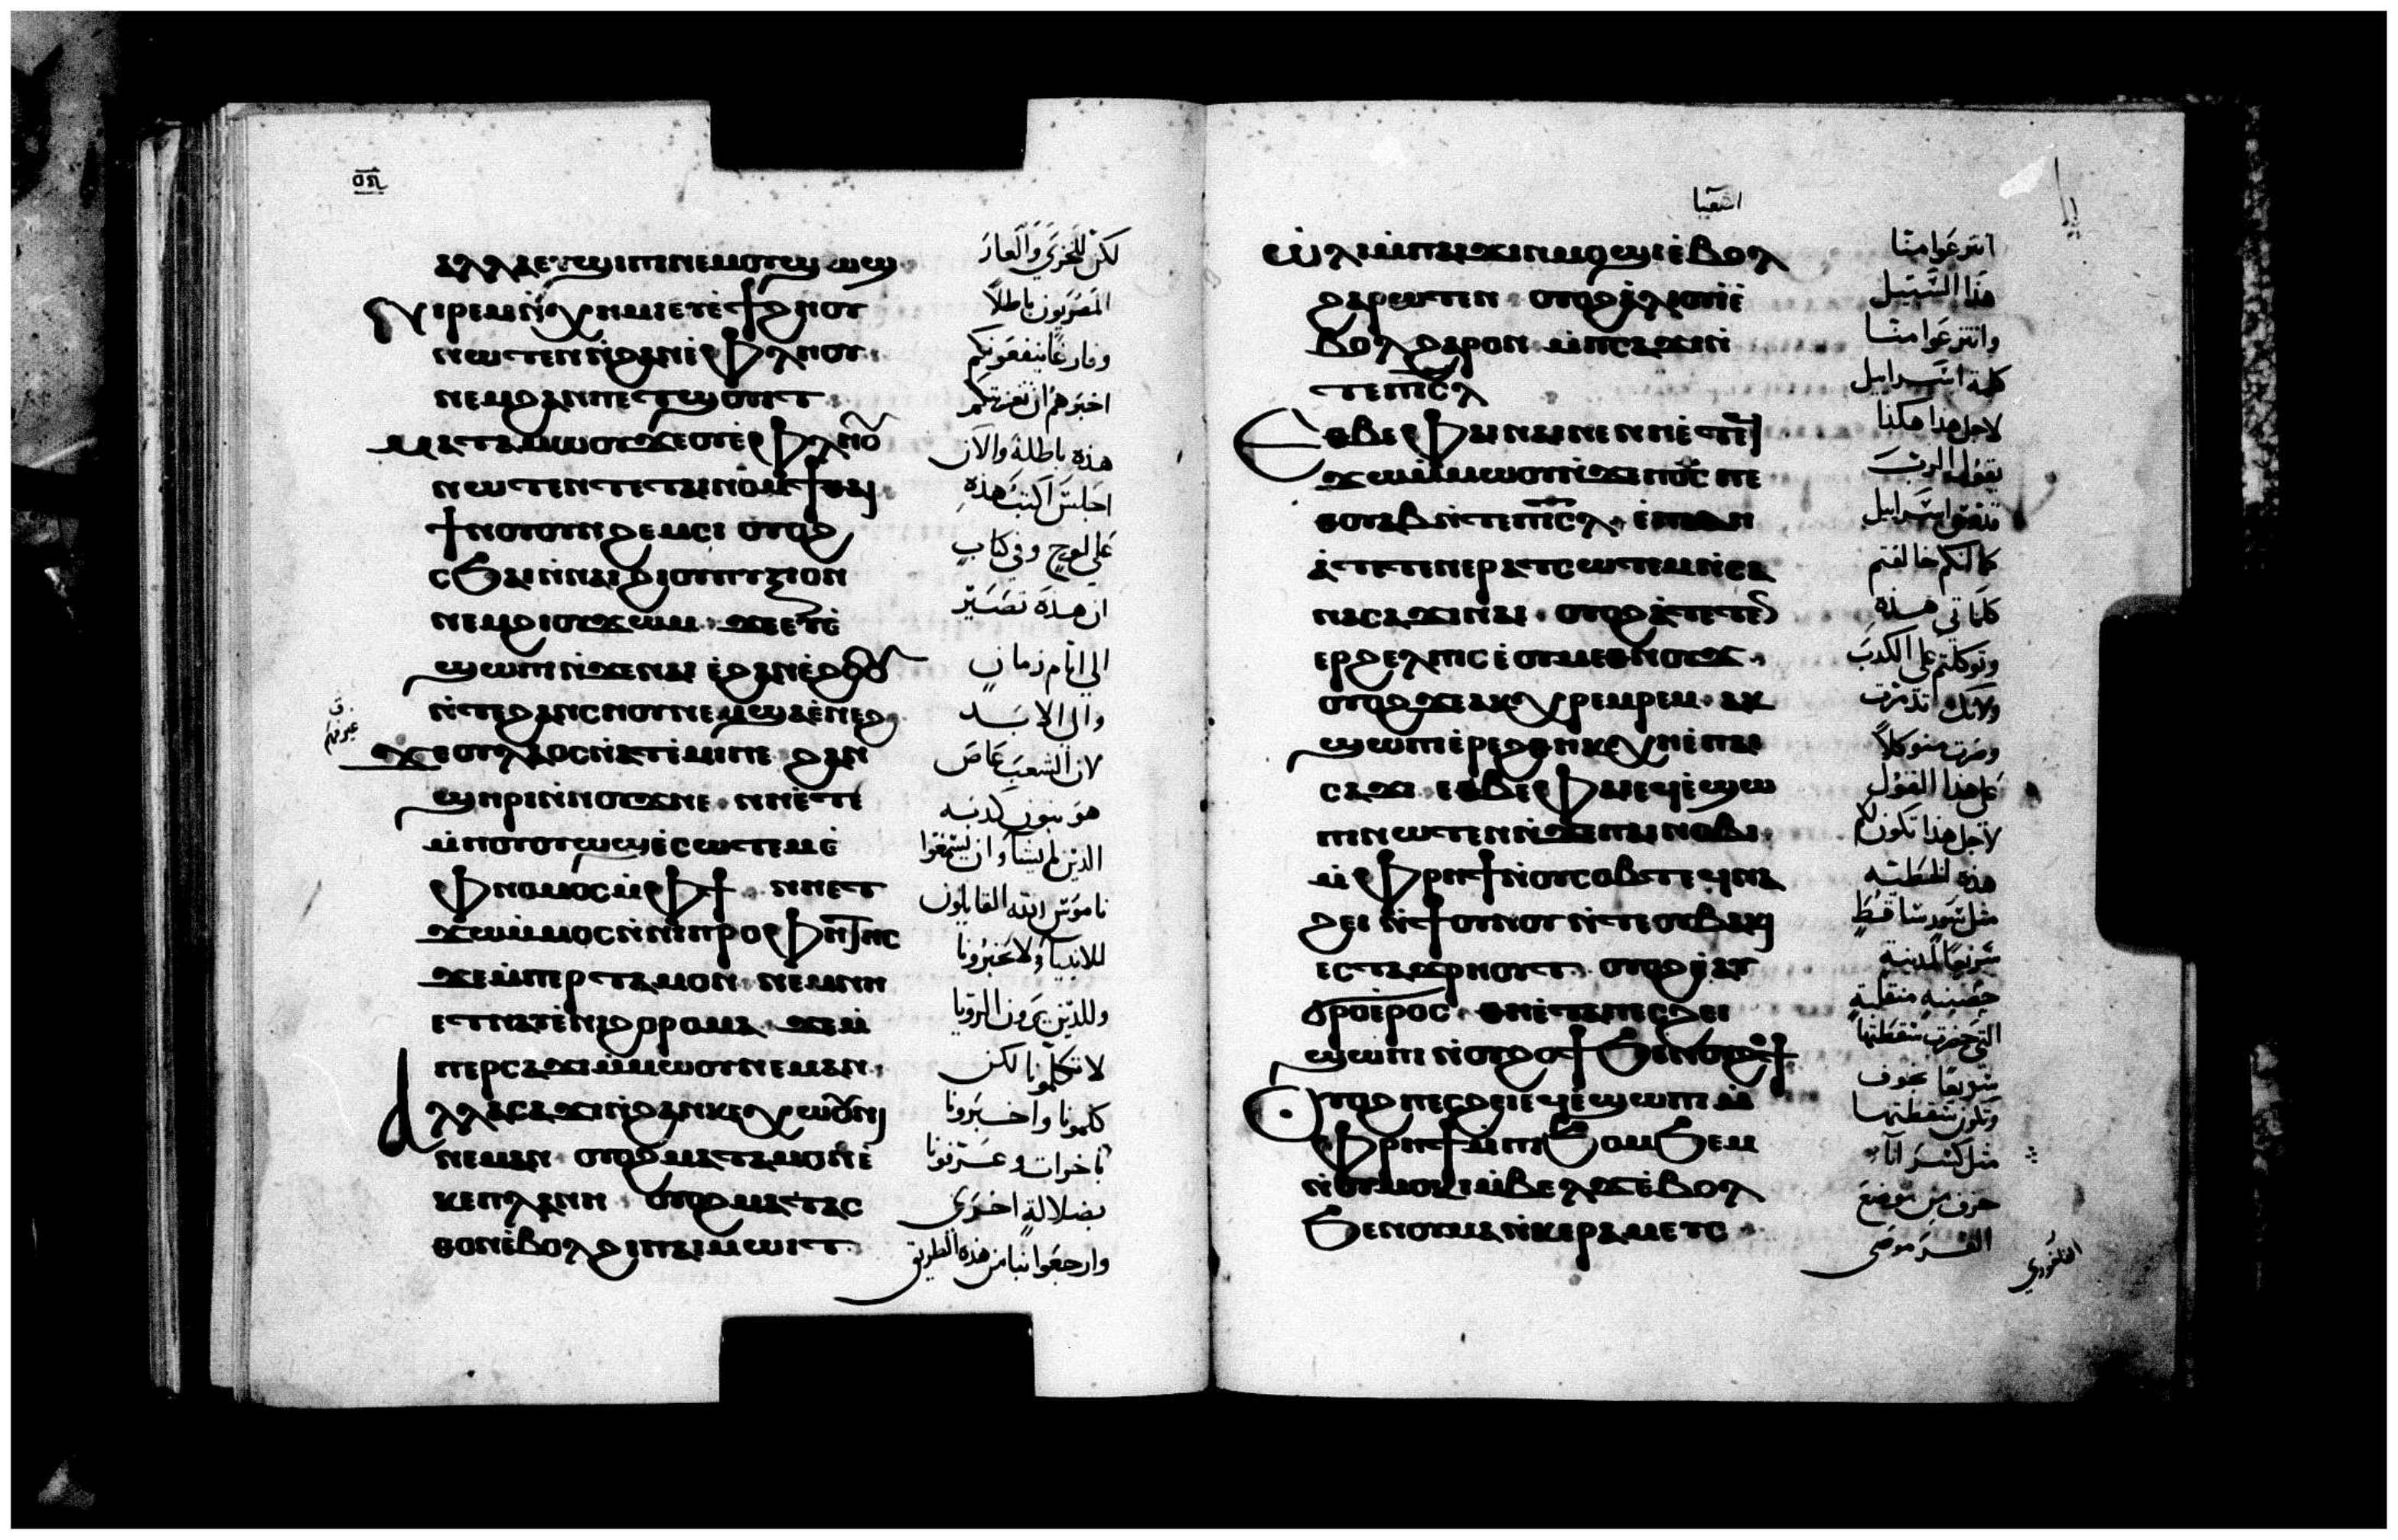 ⲁⲗⲗⲁ ⲉⲩϣⲓⲡⲓ ⲛⲉⲙ ⲟⲩϣⲱϣ
ⲛⲓⲣⲉⲙⲛ̀ⲭⲏⲙⲓ ⲉⲧⲉ̀ϯϩⲏⲟⲩ
ⲛⲱⲧⲉⲛ ⲛ̀ϩⲁⲛⲉ̀ⲫⲗⲏⲟⲩ
ⲛⲉⲙ ϩⲁⲛⲡⲉⲧϣⲟⲩⲓⲧ
ⲙⲁⲧⲁⲙⲱⲟⲩ ϫⲉ ⲟⲩⲉ̀ⲫⲗⲏⲟⲩ
ⲛⲱⲧⲉⲛ ⲧⲉ ⲧⲁⲓⲛⲟⲙϯ ⲑⲁⲓ
ϯⲛⲟⲩ ⲟⲩⲛ ϩⲉⲙⲥⲓ ⲟⲩⲟϩ
ⲥϧⲁⲓ ⲛ̀ⲛⲁⲓ ϩⲓ ⲟⲩⲡⲩⲝⲓⲟⲛ
ⲛⲉⲙ ϩⲓ ⲟⲩϫⲱⲙ ϫⲉ ⲉⲩⲉ̀
ϣⲱⲡⲓ ⲛ̀ϫⲉ ⲛⲁⲓ ⲉ̀ϩⲁⲛⲉ̀ϩⲟⲟⲩ
ⲛ̀ⲧⲉ ϩⲁⲛⲥⲏⲟⲩ ⲛⲉⲙ ϣⲁ ⲉ̀ⲛⲉϩ
ϫⲉ ⲟⲩⲗⲁⲟⲥ ⲛ̀ⲁⲧⲥⲱⲧⲉⲙ ⲡⲉ ϩⲁⲛ
ϣⲏⲣⲓ ⲛ̀ⲛⲟⲩϫ ⲛⲉ ⲛⲏ ⲉ̀ⲧⲉ
ⲙ̀ⲡⲟⲩⲟⲩⲱϣ ⲉ̀ⲥⲱⲧⲉⲙ ⲉ̀
ⲫⲛⲟⲙⲟⲥ ⲙ̀ⲫϯ ⲛⲏ ⲉⲧ
ϫⲱ ⲙ̀ⲙⲟⲥ ⲛ̀ⲛⲓⲡⲣⲟⲫⲏⲧⲏⲥ
ϫⲉ ⲙ̀ⲡⲉⲣⲧⲁⲙⲟⲛ ⲛⲉⲙ ⲛⲏ
ⲉⲧⲛⲁⲩ ⲉ̀ⲛⲓϩⲟⲣⲟⲙⲁ ϫⲉ ⲙ̀
ⲡⲉⲣⲥⲁϫⲓ ⲙ̀ⲙⲱⲟⲩ ⲛⲉⲙⲁⲛ
ⲁⲗⲗⲁ ⲥⲁϫⲓ ⲛ̀ϩⲁⲛⲕⲉⲭⲱⲟⲩⲛⲓ
ⲛⲉⲙⲁⲛ ⲟⲩⲟϩ ⲙⲁⲧⲁⲙⲟⲛ ⲉ̀
ⲕⲉⲡⲗⲁⲛⲏ ⲟⲩⲟϩ ⲙⲁⲧⲁⲥ
ⲑⲟⲛ ⲉ̀ⲃⲟⲗ ϩⲓ ⲡⲁⲓⲙⲱⲓⲧ
لكن للخزي والعار
المصريون باطلا
وفارغا ينفعونكم
اخبرهم ان تعزيتكم
هذه باطلة والان
اجلس اكتب هذه
على لوح وفي كتاب
ان هذه تصير
الى ايام زمان
والى الابد
لان الشعب عاص
هو بنون كدبه
الذين لم يشاوا ان يسمعوا
ناموس الله القايلون
للانبياء لا تخبرونا
وللذين يرون الرويا
لا تكلمونا لكن
كلمونا واخبرونا
باخرات وعرفونا
بضلالة اخرى
وارجعوا بنا من هذه الطريق
اشعيا
ⲱ̀ⲗⲓ ⲙ̀ⲡⲁⲓϫⲓⲛⲙⲟϣⲓ ⲉ̀ⲃⲟⲗ
ϩⲁⲣⲱⲧⲉⲛ ⲟⲩⲟϩ ⲁ̀ⲗⲓⲟⲩⲓ̀ ⲉ̀
ⲃⲟⲗ ϩⲁⲣⲟⲛ ⲙ̀ⲡⲥⲁϫⲓ ⲛ̀
ⲧⲉ ⲡⲓⲥ̅ⲗ̅
ⲉⲑⲃⲉ ⲫⲁⲓ ⲛⲁⲓ ⲛⲉ ⲛⲏ ⲉ̀ⲧⲉϥ
ϫⲱ ⲙ̀ⲙⲱⲟⲩ ⲛ̀ϫⲉ ⲡⲟ̅ⲥ̅ ⲡⲉ
ⲑⲟⲩⲁⲃ ⲛ̀ⲧⲉ ⲡⲓⲥ̅ⲗ̅ ⲉ̀ⲡⲓⲇⲏ
ⲁ̀ⲧⲉⲧⲉⲛⲉⲣⲁⲧⲥⲱⲧⲉⲙ ⲛ̀ⲥⲁ
ⲛⲁⲥⲁϫⲓ ⲛⲁⲓ ⲟⲩⲟϩ ⲁ̀ⲧⲉⲧⲉⲛ
ⲉⲣϩⲉⲗⲡⲓⲥ ⲉ̀ⲟⲩⲙⲉⲑⲛⲟⲩϫ
ⲟⲩⲟϩ ϫⲉ ⲁⲕⲭⲣⲉⲙⲣⲉⲙ ⲁⲕ
ϣⲱⲡⲓ ⲉ̀ⲣⲉ ϩⲑⲏⲕ ⲭⲏ ⲉ̀ⲡⲁⲓ
ⲥⲁϫⲓ ⲉⲑⲃⲉ ⲫⲁⲓ ⲉϥⲉ̀ϣⲱ
ⲡⲓ ⲛⲱⲧⲉⲛ ⲛ̀ϫⲉ ⲡⲁⲓⲛⲟⲃⲓ
ⲙ̀ⲫⲣⲏϯ ⲛ̀ⲟⲩⲥⲟⲃⲧ ⲉϥⲛⲁ
ϩⲉⲓ ⲛ̀ϯⲟⲩⲛⲟⲩ ⲛ̀ⲧⲉ ⲟⲩⲃⲁⲕⲓ
ⲉⲥⲧⲁϫⲣⲏⲟⲩⲧ ⲟⲩⲟϩ ⲉ̀ⲁⲩ
ϭⲣⲟ ⲉ̀ⲣⲟⲥ ⲑⲏ ⲉ̀ⲧⲁ ⲡⲉⲥϩⲉⲓ
ϣⲱⲡⲓ ⲛ̀ⲟⲩϩⲟϯ ϧⲉⲛ ⲟⲩϩⲟϯ
ⲟⲩⲟϩ ⲡⲉⲥϩⲉⲓ ⲉϥⲉ̀ϣⲱⲡⲓ ⲙ̀
ⲫⲣⲏϯ ⲙ̀ⲡⲓϧⲟⲙϧⲉⲙ
ⲛ̀ⲟⲩⲙⲟⲕⲓ ⲙ̀ⲃⲉⲗϫ ⲉ̀ⲃⲟⲗ
ϧⲉⲛ ⲟⲩⲙⲁ ⲛ̀ⲕⲉⲣⲁⲙⲉⲩⲥ
انتزعوا منا
هذا السبيل
وانتزعوا منا
كلمة اسراييل
لاجل هذا هكذا
يقول الرب
قدوس اسراييل
كما انكم خالفتم
كلماتي هذه
وتوكلتم على الكدب
ولانك تذمرت
وصرت متوكلا
على هذا القول
لاجل هذا تكون لكم
هذه الخطية
مثل سور ساقط
سريعا لمدينة
حصينة
سريعا بخوف
وتكون سقطتها
مثل كسر اناء
خزف من موضع